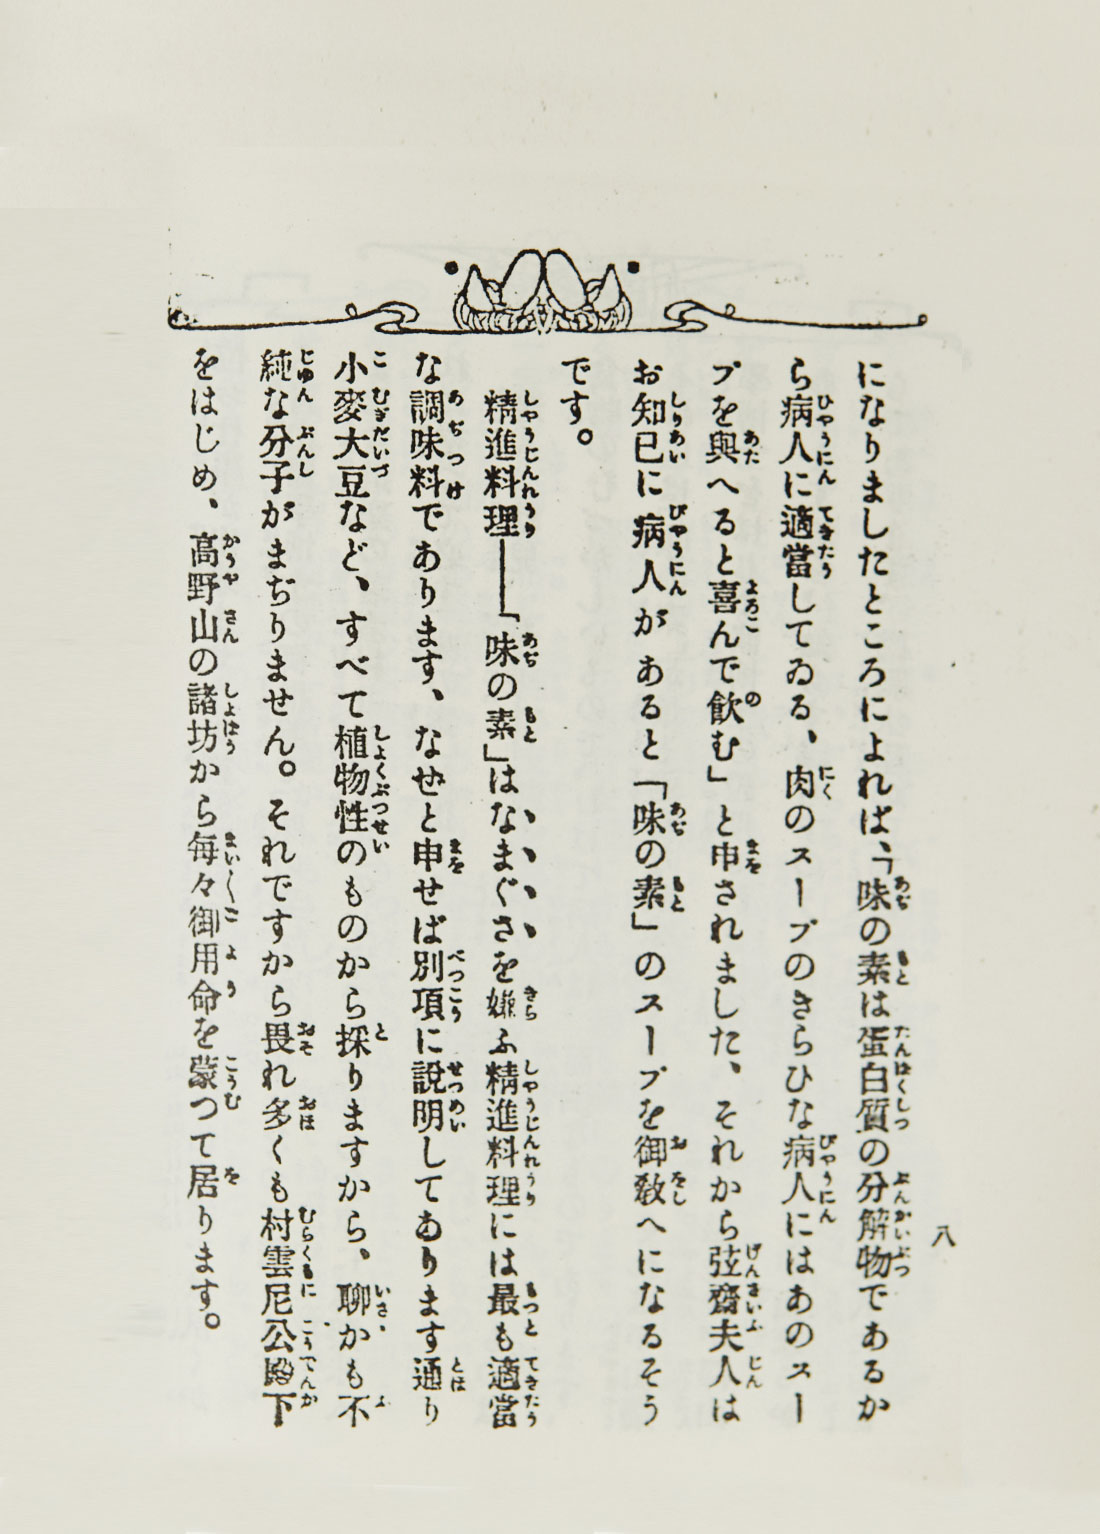 八
になりましたところによれば、「味の素は蛋白質の分解物であるか
ら病人に適當してゐる、肉のスープのきらひな病人にはあのスー
プを與へると喜んで飮む」と申されました、それから弦齋夫人は
お知已に病人があると「味の素」のスープを御敎へになるそう
です。
精進料理──「味の素」はなまぐさを嫌ふ精進料理には最も適當
な調味料であります、なぜと申せば別項に説明してあります通り
小麥大豆など、すべて植物性のものから採りますから、聊かも不
純な分子がまぢりません。それですから畏れ多くも村雲尼公殿下
をはじめ、高野山の諸坊から每々御用命を蒙つて居ります。